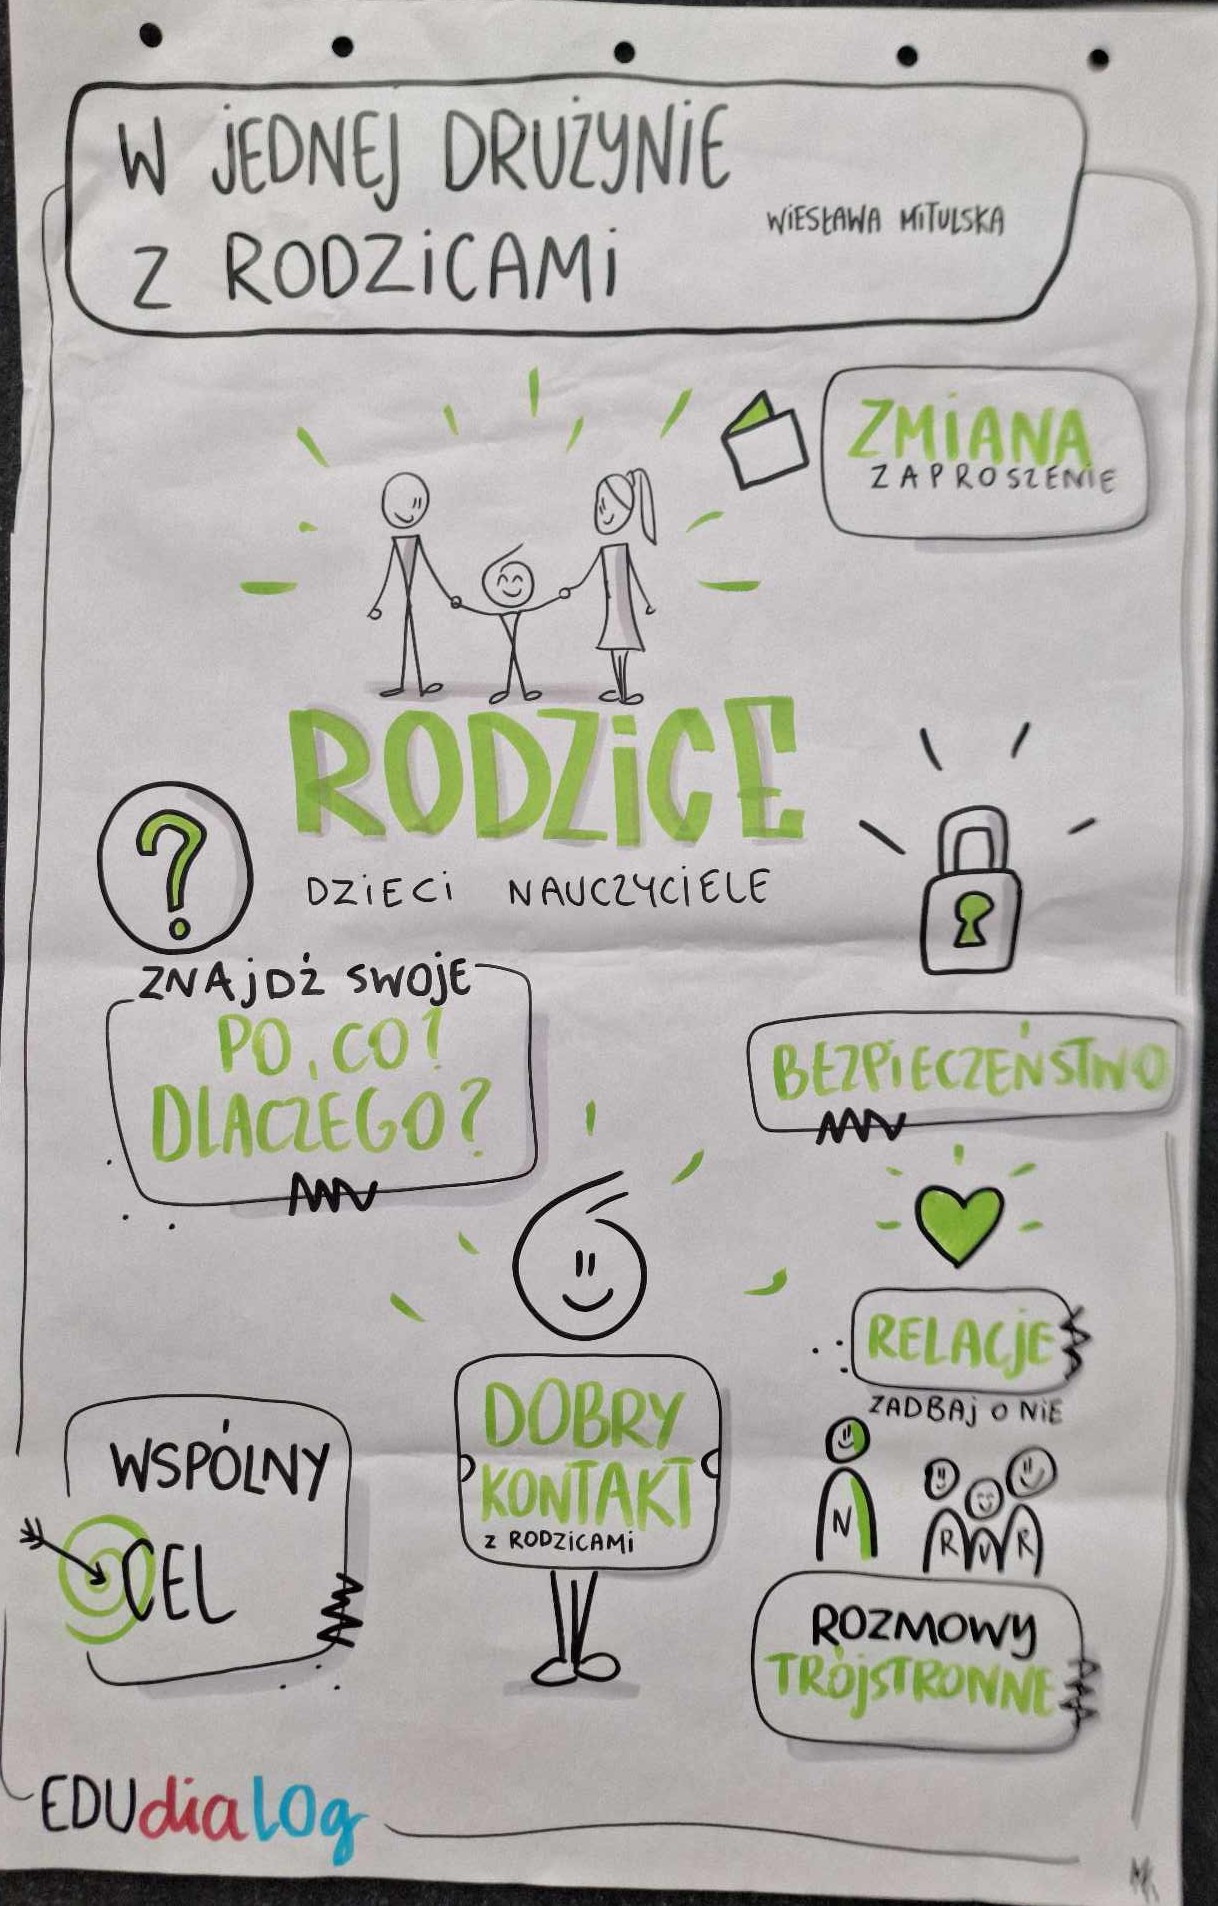 W JEDNEJ DRUŻYNIE
Z RODZICAMI
WIESŁAWA MITULSKA
ZMIANA
ZAPROSZENIE
RODZICE
DZIECI NAUCZYCIELE
?
ZNAJDŹ SWOJE
PO, CO?
DLACZEGO?
BEZPIECZEŃSTWO
RELACJE
ZADBAJ O NIE
DOBRY
KONTAKT
Z RODZICAMI
WSPÓLNY
CEL
N
R U R
ROZMOWY
TRÓJSTRONNE
EDUdialog